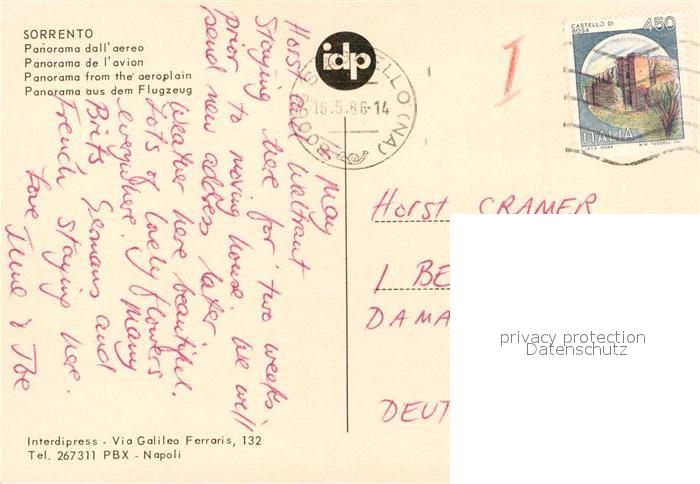 SORRENTO
Panorama dall'aereo
Panorama de l'avion
Panorama from the aeroplain
Panorama aus dem Flugzeug
idp
16.5.86-14
(NA)
I
CASTELLO DI
ROSA
450
ITALIA
May
Horst and Waltraut
Staying here for two weeks
prior to moving house. We will
send new address later
Weather here beautiful.
Lots of lovely flowers
everywhere. Many
Brits, Germans and
French staying here.
Love
June & Joe
Horst CRAMER
1 BE
DAMA
DEUT
privacy protection
Datenschutz
Interdipress - Via Galileo Ferraris, 132
Tel. 267311 PBX - Napoli